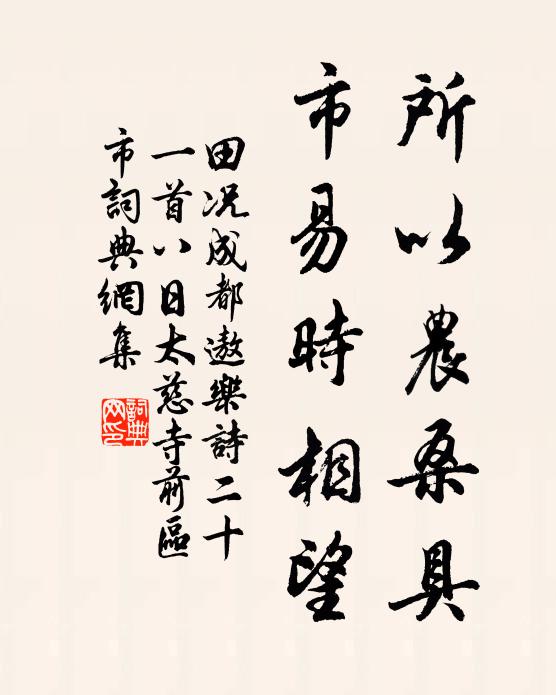 所以農桑具
市易時相望
田況成都遨樂詩二十
一首八日太慈寺前區
市詞典網集
詞典
网印